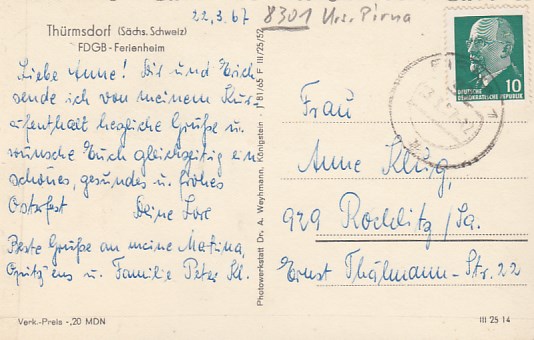 22.3.67
8301 Krs. Pirna
Thürmsdorf (Sächs. Schweiz)
FDGB - Ferienheim
Liebe Anne! Dir und Erich
sende ich von meinem Kur-
aufenthalt herzliche Grüße u.
wünsche Euch gleichzeitig ein
schönes, gesundes u. frohes
Osterfest Deine Lore
Beste Grüße an meine Martina,
u. Familie Peter Kl.
Verk.-Preis -,20 MDN
Photowerkstatt Dr. A. Weyhmann, Königstein - J 81/65 F III/25/52
10
DEUTSCHE
DEMOKRATISCHE REPUBLIK
Frau
Anne Klug,
929 Rochlitz/Sa.
Ernst Thälmann-Str. 22
III 25 14